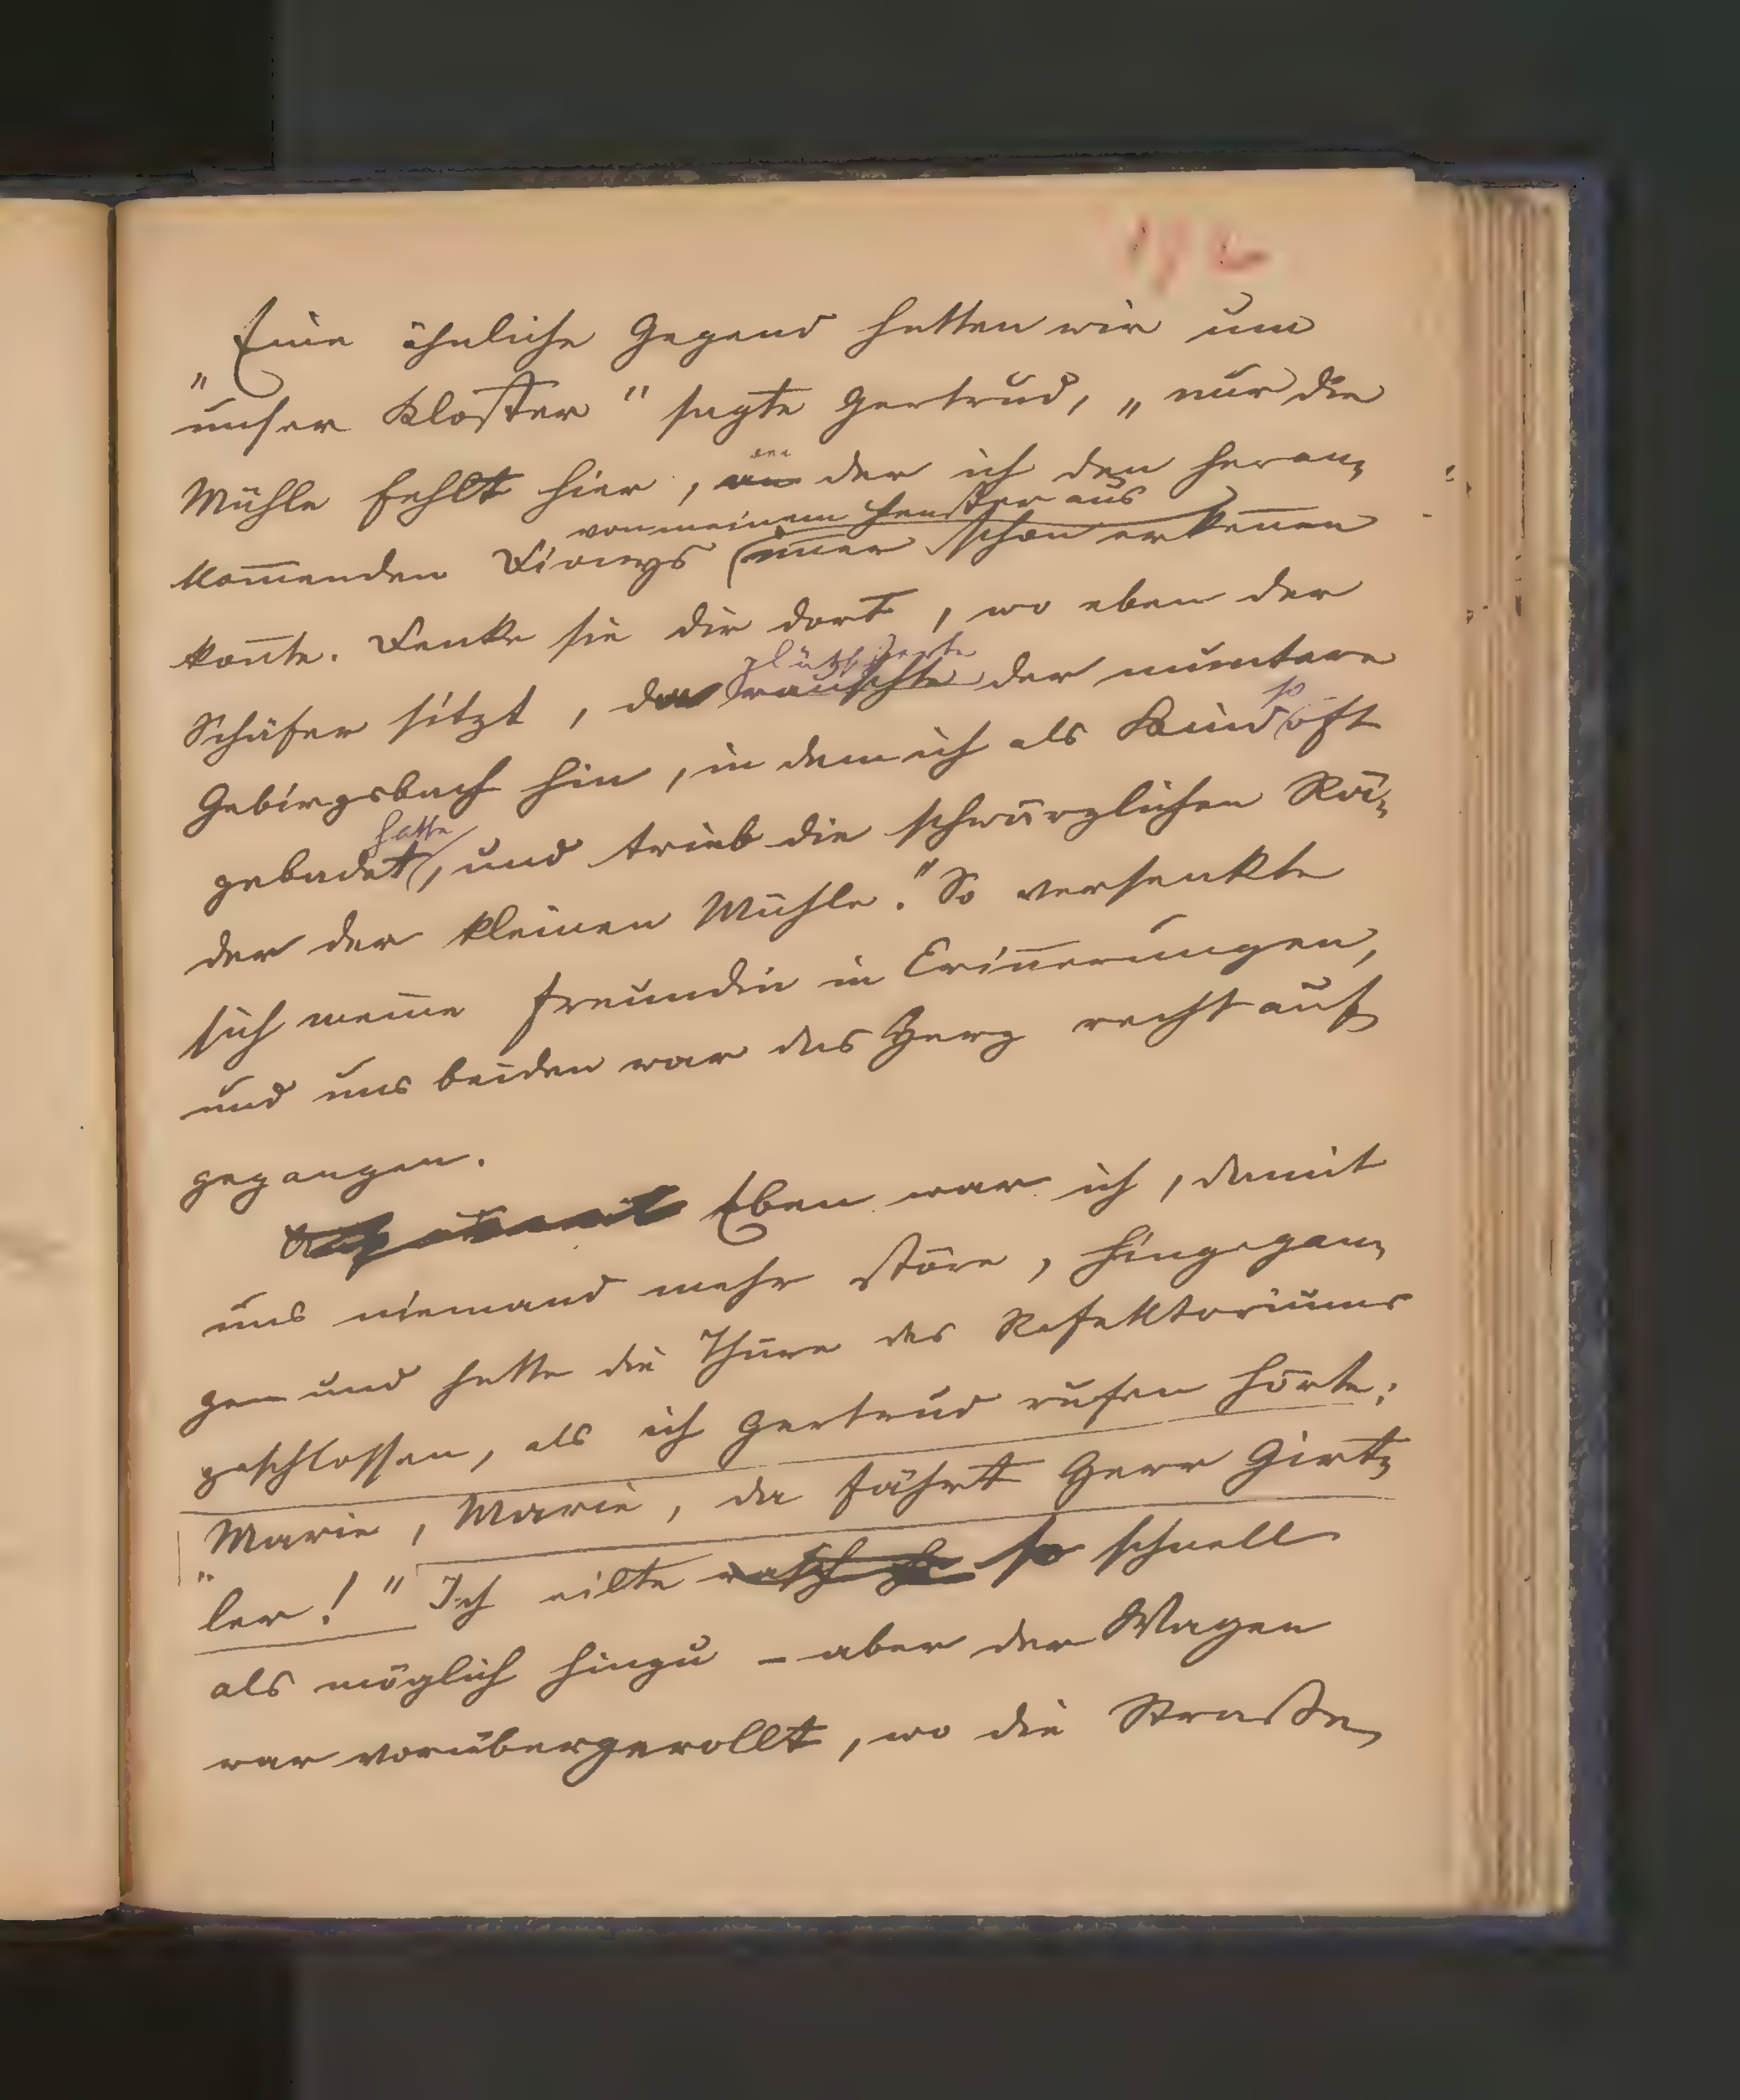 192
„Eine ähnliche Gegend hatten wir um
unser Kloster“ sagte Gertrud, „nur die
Mühle fehlt hier, an der ich den heran-
von meinem Fenster aus
kom̅enden Dionys im̅er schon erken̅en
kon̅te. Denke sie dir dort, wo eben der
plätscherte
Schäfer sitzt, da rauschte der muntere
so
Gebirgsbach hin, in dem ich als Kind oft
hatte
gebadet, und trieb die schwärzlichen Rä-
der der kleinen Mühle.“ So versenkte
sich meine Freundin in Erin̅erungen,
und uns beiden war das Herz recht auf
gegangen.
Eben war ich, damit
uns niemand mehr störe, hingegan-
gen und hatte die Thüre des Refektoriums
geschlossen, als ich Gertrud rufen hörte:
„Marie, Marie, da fährt Herr Girt-
ler!“ Ich eilte rasch so schnell
als möglich hinzu – aber der Wagen
war vorübergerollt, wo die Straße